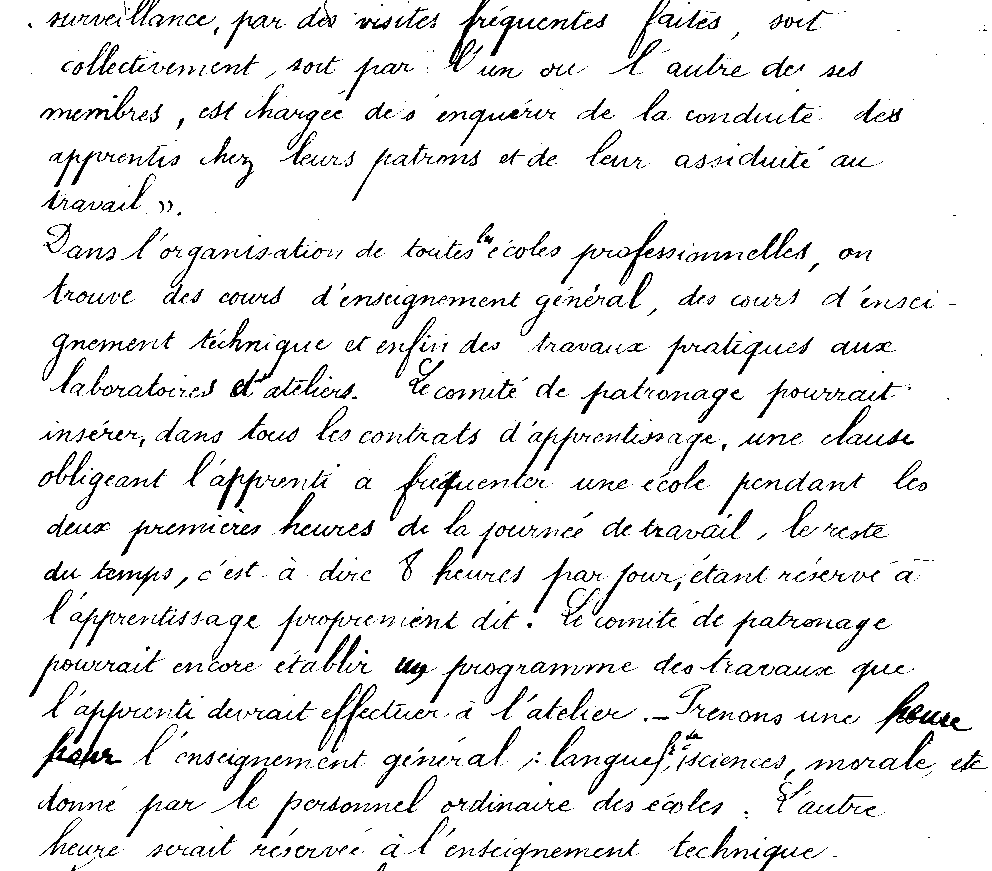 surveillance, par des visites fréquentes faites, soit
collectivement, soit par l'un ou l'autre de ses
membres, est chargée de s'enquérir de la conduite des
apprentis chez leurs patrons et de leur assiduité au
travail ».
Dans l'organisation de toutes les écoles professionnelles, on
trouve des cours d'enseignement général, des cours d'ensei-
gnement technique et enfin des travaux pratiques aux
laboratoires et ateliers. Le comité de patronage pourrait
insérer, dans tous les contrats d'apprentissage, une clause
obligeant l'apprenti à fréquenter une école pendant les
deux premières heures de la journée de travail, le reste
du temps, c'est à dire 8 heures par jour, étant réservé à
l'apprentissage proprement dit. Le comité de patronage
pourrait encore établir un programme des travaux que
l'apprenti devrait effectuer à l'atelier. - Prenons une heure
pour l'enseignement général : langue, sciences, morale, etc
donné par le personnel ordinaire des écoles. L'autre
heure serait réservée à l'enseignement technique.